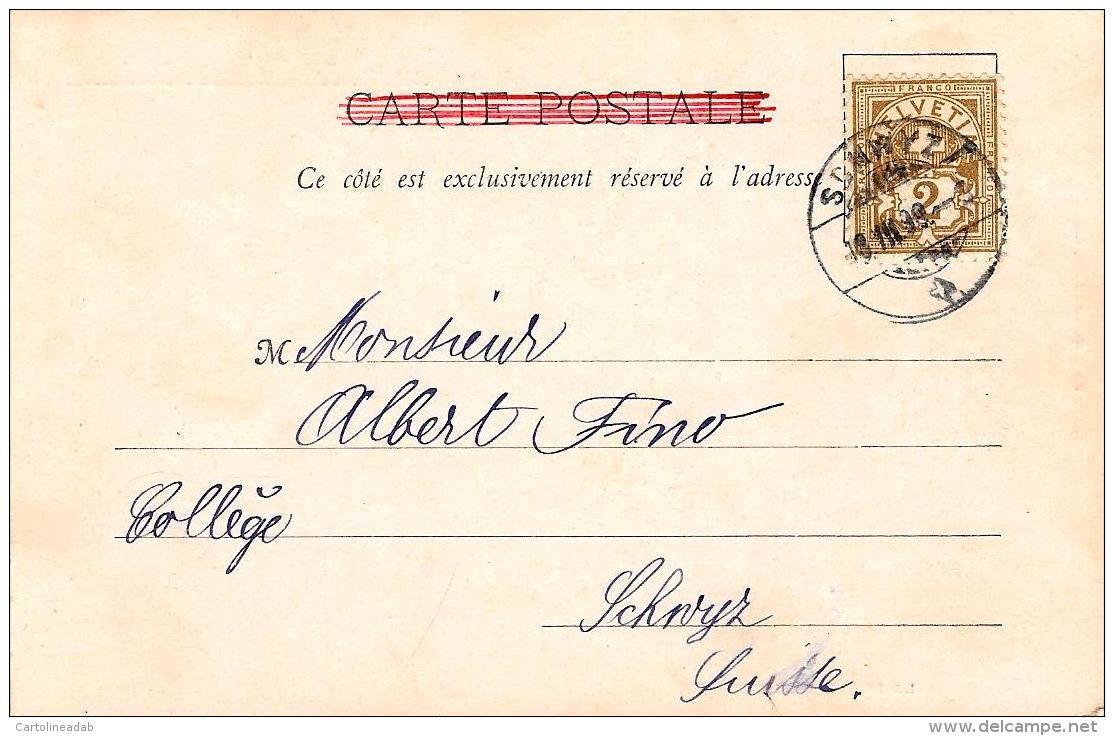 CARTE POSTALE
Ce côté est exclusivement réservé à l'adresse
FRANCO
HELVETIA
FRANCO
2
SCHWYZ
M Monsieur
Albert Fino
Collège
Schwyz
Suisse.
Cartolineadab
delcampe.net